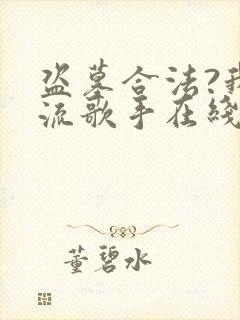 盗墓合法?我
流歌手在綫
董碧水